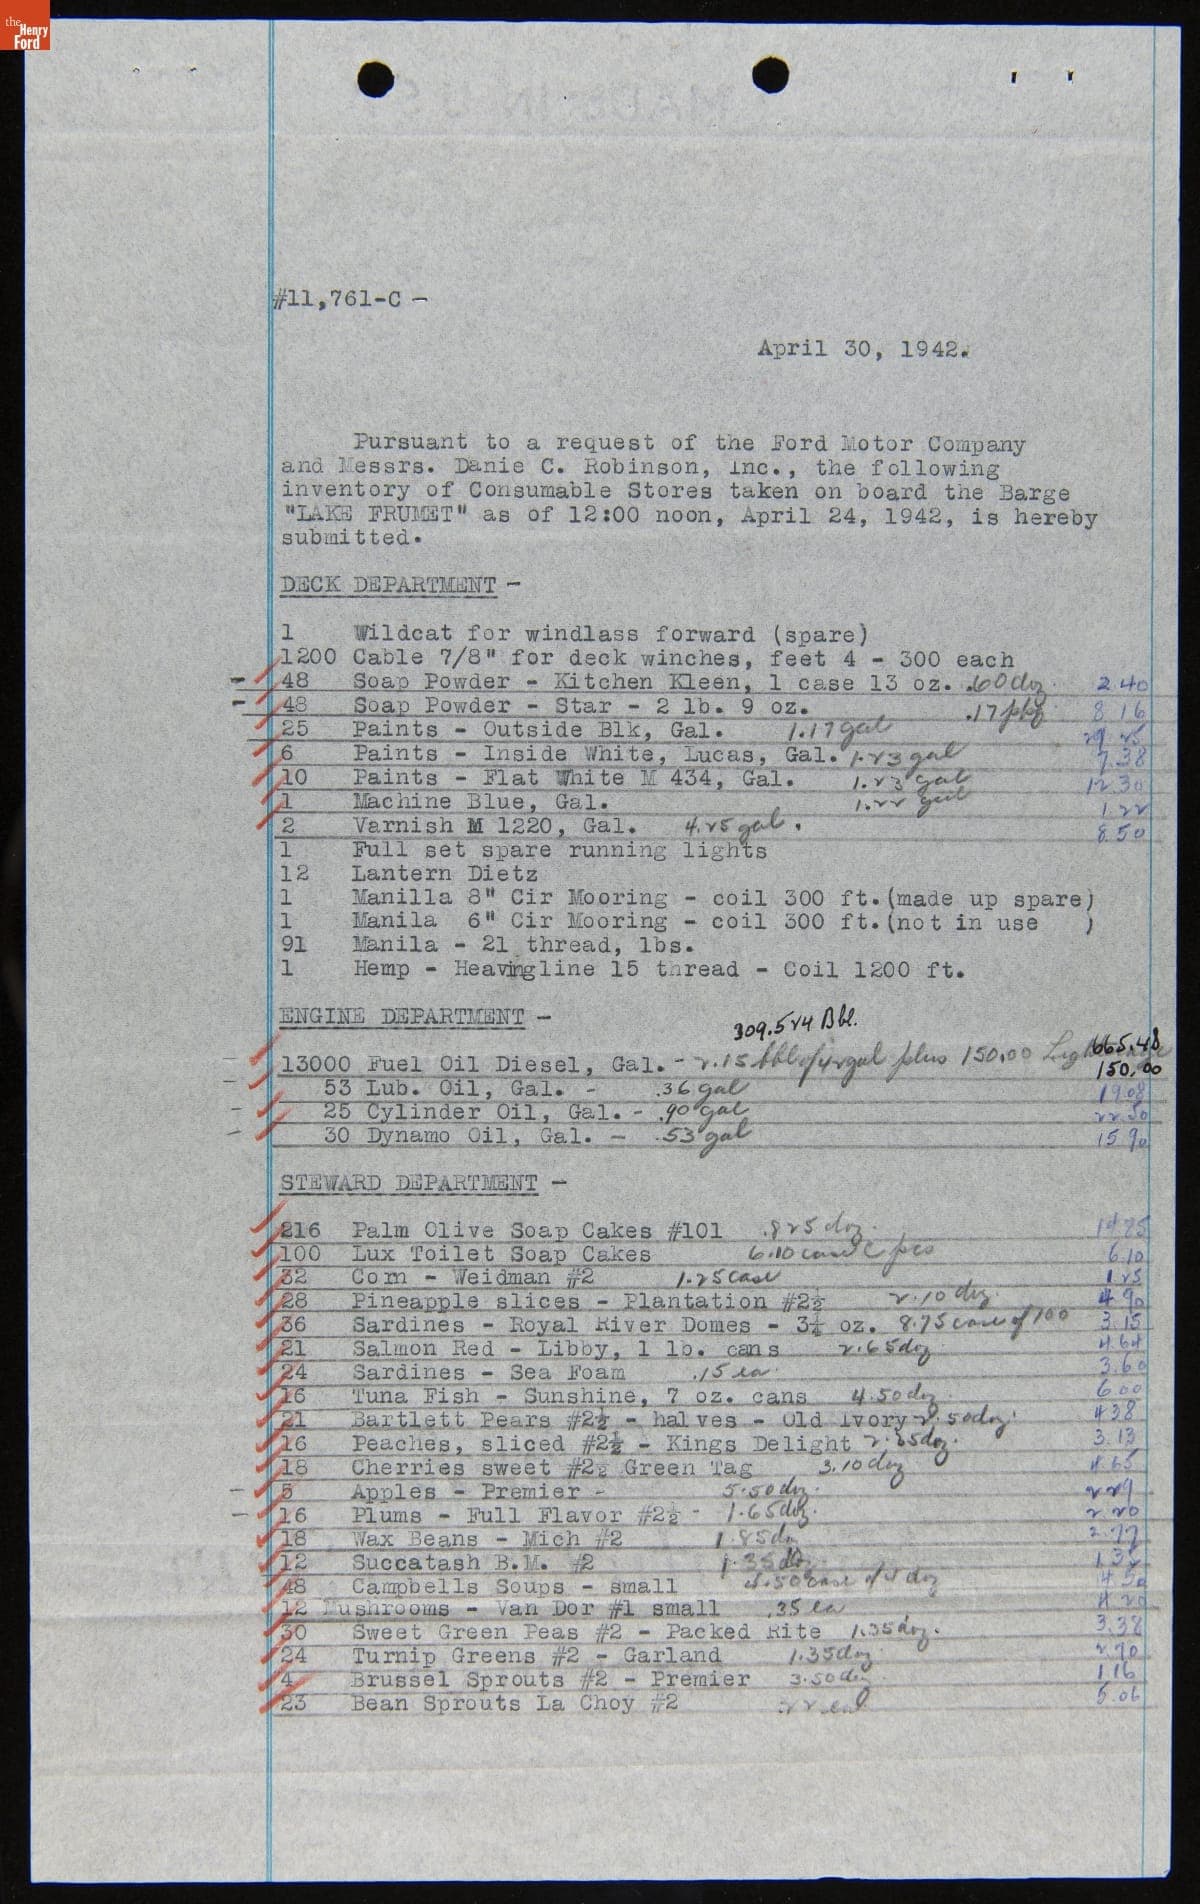 the
Henry
Ford
MADE IN U S A
#11,761-C -
April 30, 1942.
Pursuant to a request of the Ford Motor Company
and Messrs. Danie C. Robinson, Inc., the following
inventory of Consumable Stores taken on board the Barge
"LAKE FRUMET" as of 12:00 noon, April 24, 1942, is hereby
submitted.
DECK DEPARTMENT -
1 Wildcat for windlass forward (spare)
1200 Cable 7/8" for deck winches, feet 4 - 300 each
48 Soap Powder - Kitchen Kleen, 1 case 13 oz. .60 doz. 2.40
48 Soap Powder - Star - 2 lb. 9 oz. .17 pkg 8 16
25 Paints - Outside Blk, Gal. 1.17 gal 29 25
6 Paints - Inside White, Lucas, Gal. 1.23 gal 7.38
10 Paints - Flat White M 434, Gal. 1.23 gal 12.30
1 Machine Blue, Gal. 1.22 gal 1.22
2 Varnish M 1220, Gal. 4.25 gal. 8.50
1 Full set spare running lights
12 Lantern Dietz
1 Manilla 8" Cir Mooring - coil 300 ft.(made up spare)
1 Manila 6" Cir Mooring - coil 300 ft.(not in use )
91 Manila - 21 thread, lbs.
1 Hemp - Heavingline 15 thread - Coil 1200 ft.
ENGINE DEPARTMENT -
309.524 Bbl.
13000 Fuel Oil Diesel, Gal. - 2.15 bbl of 42 gal plus 150.00 665.48
150.00
53 Lub. Oil, Gal. - .36 gal 19.08
25 Cylinder Oil, Gal. - .90 gal 22.50
30 Dynamo Oil, Gal. - .53 gal 15 90
STEWARD DEPARTMENT -
216 Palm Olive Soap Cakes #101 .825 doz. 14 85
100 Lux Toilet Soap Cakes 6.10 case C pcs 6.10
32 Corn - Weidman #2 1.25 case 1 25
28 Pineapple slices - Plantation #2½ 2.10 doz. 4 90
36 Sardines - Royal River Domes - 3¼ oz. 8.75 case of 100 3.15
21 Salmon Red - Libby, 1 lb. cans 2.65 doz. 4.64
24 Sardines - Sea Foam .15 ea. 3.60
16 Tuna Fish - Sunshine, 7 oz. cans 4.50 doz. 6.00
21 Bartlett Pears #2½ - halves - Old Ivory 2.50 doz. 4 38
16 Peaches, sliced #2½ - Kings Delight 2.35 doz. 3.13
18 Cherries sweet #2½ Green Tag 3.10 doz 4.65
5 Apples - Premier - 5.50 doz. 2 29
16 Plums - Full Flavor #2½ - 1.65 doz. 2 20
18 Wax Beans - Mich #2 1.85 doz 2.77
12 Succatash B.M. #2 1.35 doz 1.35
48 Campbells Soups - small 4.50 case of 4 doz 4 50
12 Mushrooms - Van Dor #1 small .35 ea 4 20
30 Sweet Green Peas #2 - Packed Rite 1.35 doz. 3.38
24 Turnip Greens #2 - Garland 1.35 doz 2 70
4 Brussel Sprouts #2 - Premier 3.50 doz 1 16
23 Bean Sprouts La Choy #2 22 ea 5.06